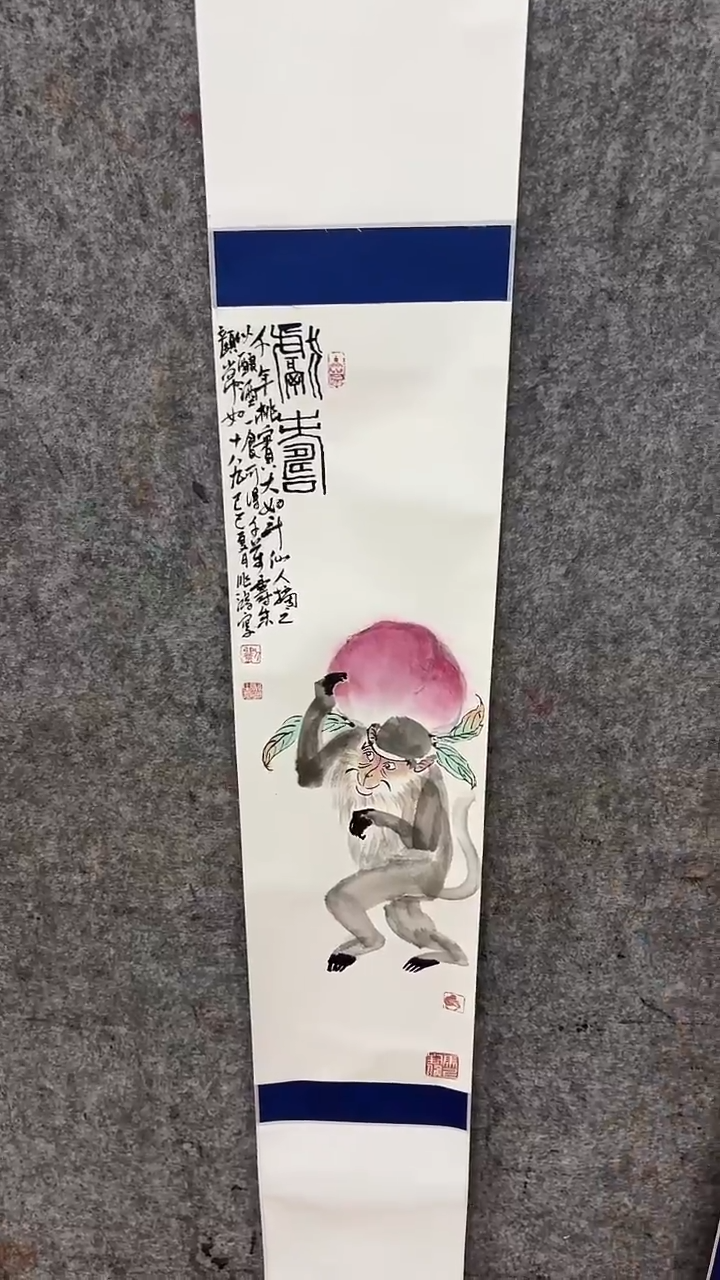 獻壽
千年桃實大如斗仙人摘之
以釀酒一食可得千萬壽朱
顏常如十八九己巳夏月兆鴻寫